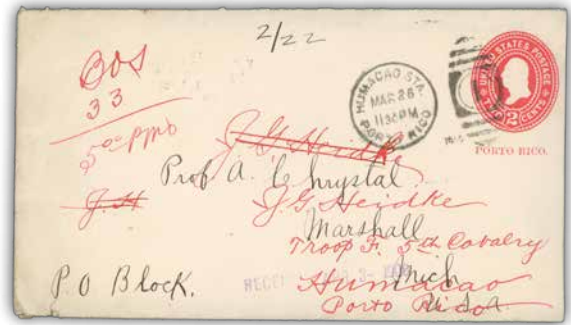 2/22
BOS
33
5 00 ppd
HUMACAO STA.
MAR 28
11 30 PM
PORTO RICO
UNITED STATES POSTAGE
2 CENTS
PORTO RICO.
J G Heidke
Prof A. Chrystal.
J. H
J G Heidke
Marshall
Troop F. 5th Cavalry
Mich
P.O Block.
Humacao
Porto Rico
U.S.a